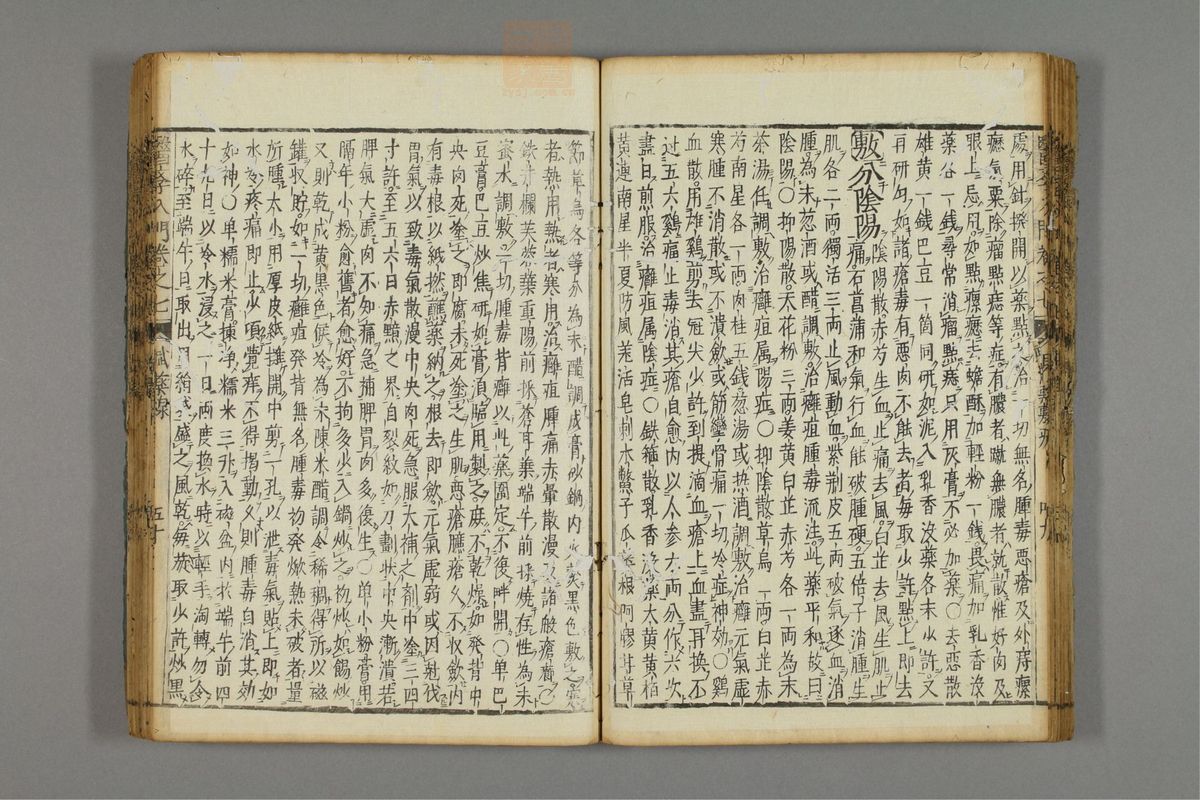 處用針撥開以藥點之治一切無名腫毒惡瘡及外痔瘰
癧氣粟除瘤點痣等症有膿者
眼上忌用如點瘰癧去蟾酥加輕粉一錢畏痛加乳香沒
藥各一錢尋常消瘤點痣只用灰膏不必加藥○去惡散
雄黃一錢巴豆一箇同研如泥入乳香沒藥各末少許又
再研勻如諸瘡毒有惡肉不能去者每取少許點上即去
敷分陰陽 陰陽散赤芍生血止痛去風白芷去風生肌止
痛石菖蒲和氣行血能破腫硬五倍子消腫生
肌各二兩獨活三兩止風動血紫荊皮五兩破氣逐血消
腫為末葱酒或醋調敷治癰疽腫毒流注此藥平和故曰
陰陽○抑陽散天花粉三兩姜黃白芷赤芍各一兩為末
茶湯任調敷治癰疽属陽症○抑陰散草烏一兩白芷赤
芍南星各一兩肉桂五錢葱湯或热酒調敷治癰元氣虛
寒腫不消散或不潰斂或筋攣骨痛一切冷症神効○鷄
血散用雄鷄剪去冠尖少許到提滴血瘡上血盡再換不
过五六鷄痛止毒消其瘡自愈內以人参六兩分作六次
盡日煎服治癰疽属陰症○鉄箍散乳香沒藥大黃黃栢
黃連南星半夏防風羌活皂刺木鱉子瓜蔞根阿膠甘草
節草烏各等分為末醋調成膏砂鍋內火熬黑色敷之寒
者熱用熱者寒用治癰疽腫痛赤暈散漫及諸般瘡癤○
鉄井欄芙蓉葉重陽前採蒼耳葉端午前採燒存性為末
蜜水調敷一切腫毒背癰以此藥圍定不復畔開○单巴
豆膏巴豆炒焦研如膏須臨用製之庶不乾燥如發背中
央肉死塗之即腐未死塗之生肌惡瘡臁瘡久不收斂內
有毒根以紙撚蘸藥納之根去即斂元氣虛弱或因尅伐
胃氣以致毒氣散漫中央肉死急服大補之剤中塗三四
寸許至五六日赤黯之界自裂紋如刀劃狀中央漸潰若
脾氣大虛肉不知痛急補脾胃肉多復生○单小粉膏用
隔年小粉愈舊者愈好不拘多少入鍋炒之初炒如餳炒
又則乾成黃黑色候冷為末陳米醋調令稀稠得所以磁
鑵収貯如一切癰疽発背無名腫毒初発焮熱未破者量
所腫大小用厚皮紙攤開中剪一孔以泄毒氣貼上即如
水冷疼痛即止少頃覺痒不得揭動久則腫毒自消其効
如神○单糯米膏揀净糯米三升入磁盆內於端午前四
十九日以冷水浸之一日兩度換水時以輕手淘轉勿令
水碎至端午日取出用絹袋盛之風乾每旋取少許炒黑